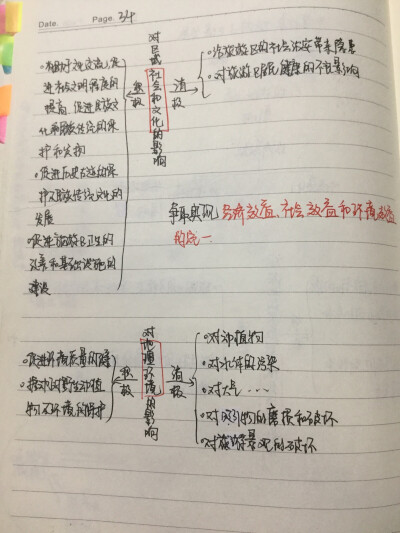 Date. Page. 34
对区域社会和文化的影响
积极
消极
进社会文明程度的
提高,促进民族文
化和民族传统的保
护和发扬
•促进历史古迹的保
护及民族传统文化的
发展
•促进旅游区卫生的
改善和基础设施的
建设
•给旅游区的社会治安带来隐患
•对旅游区居民健康的不良影响
争取实现 经济效益、社会效益和环境效益
的统一
对地理环境的影响
积极
消极
•促进环境质量的
•推动对野生动植
物及环境的保护
•对动植物
•对水体的污染
•对大气…
•对吸引物的磨损和破坏
•对旅游景观的破坏